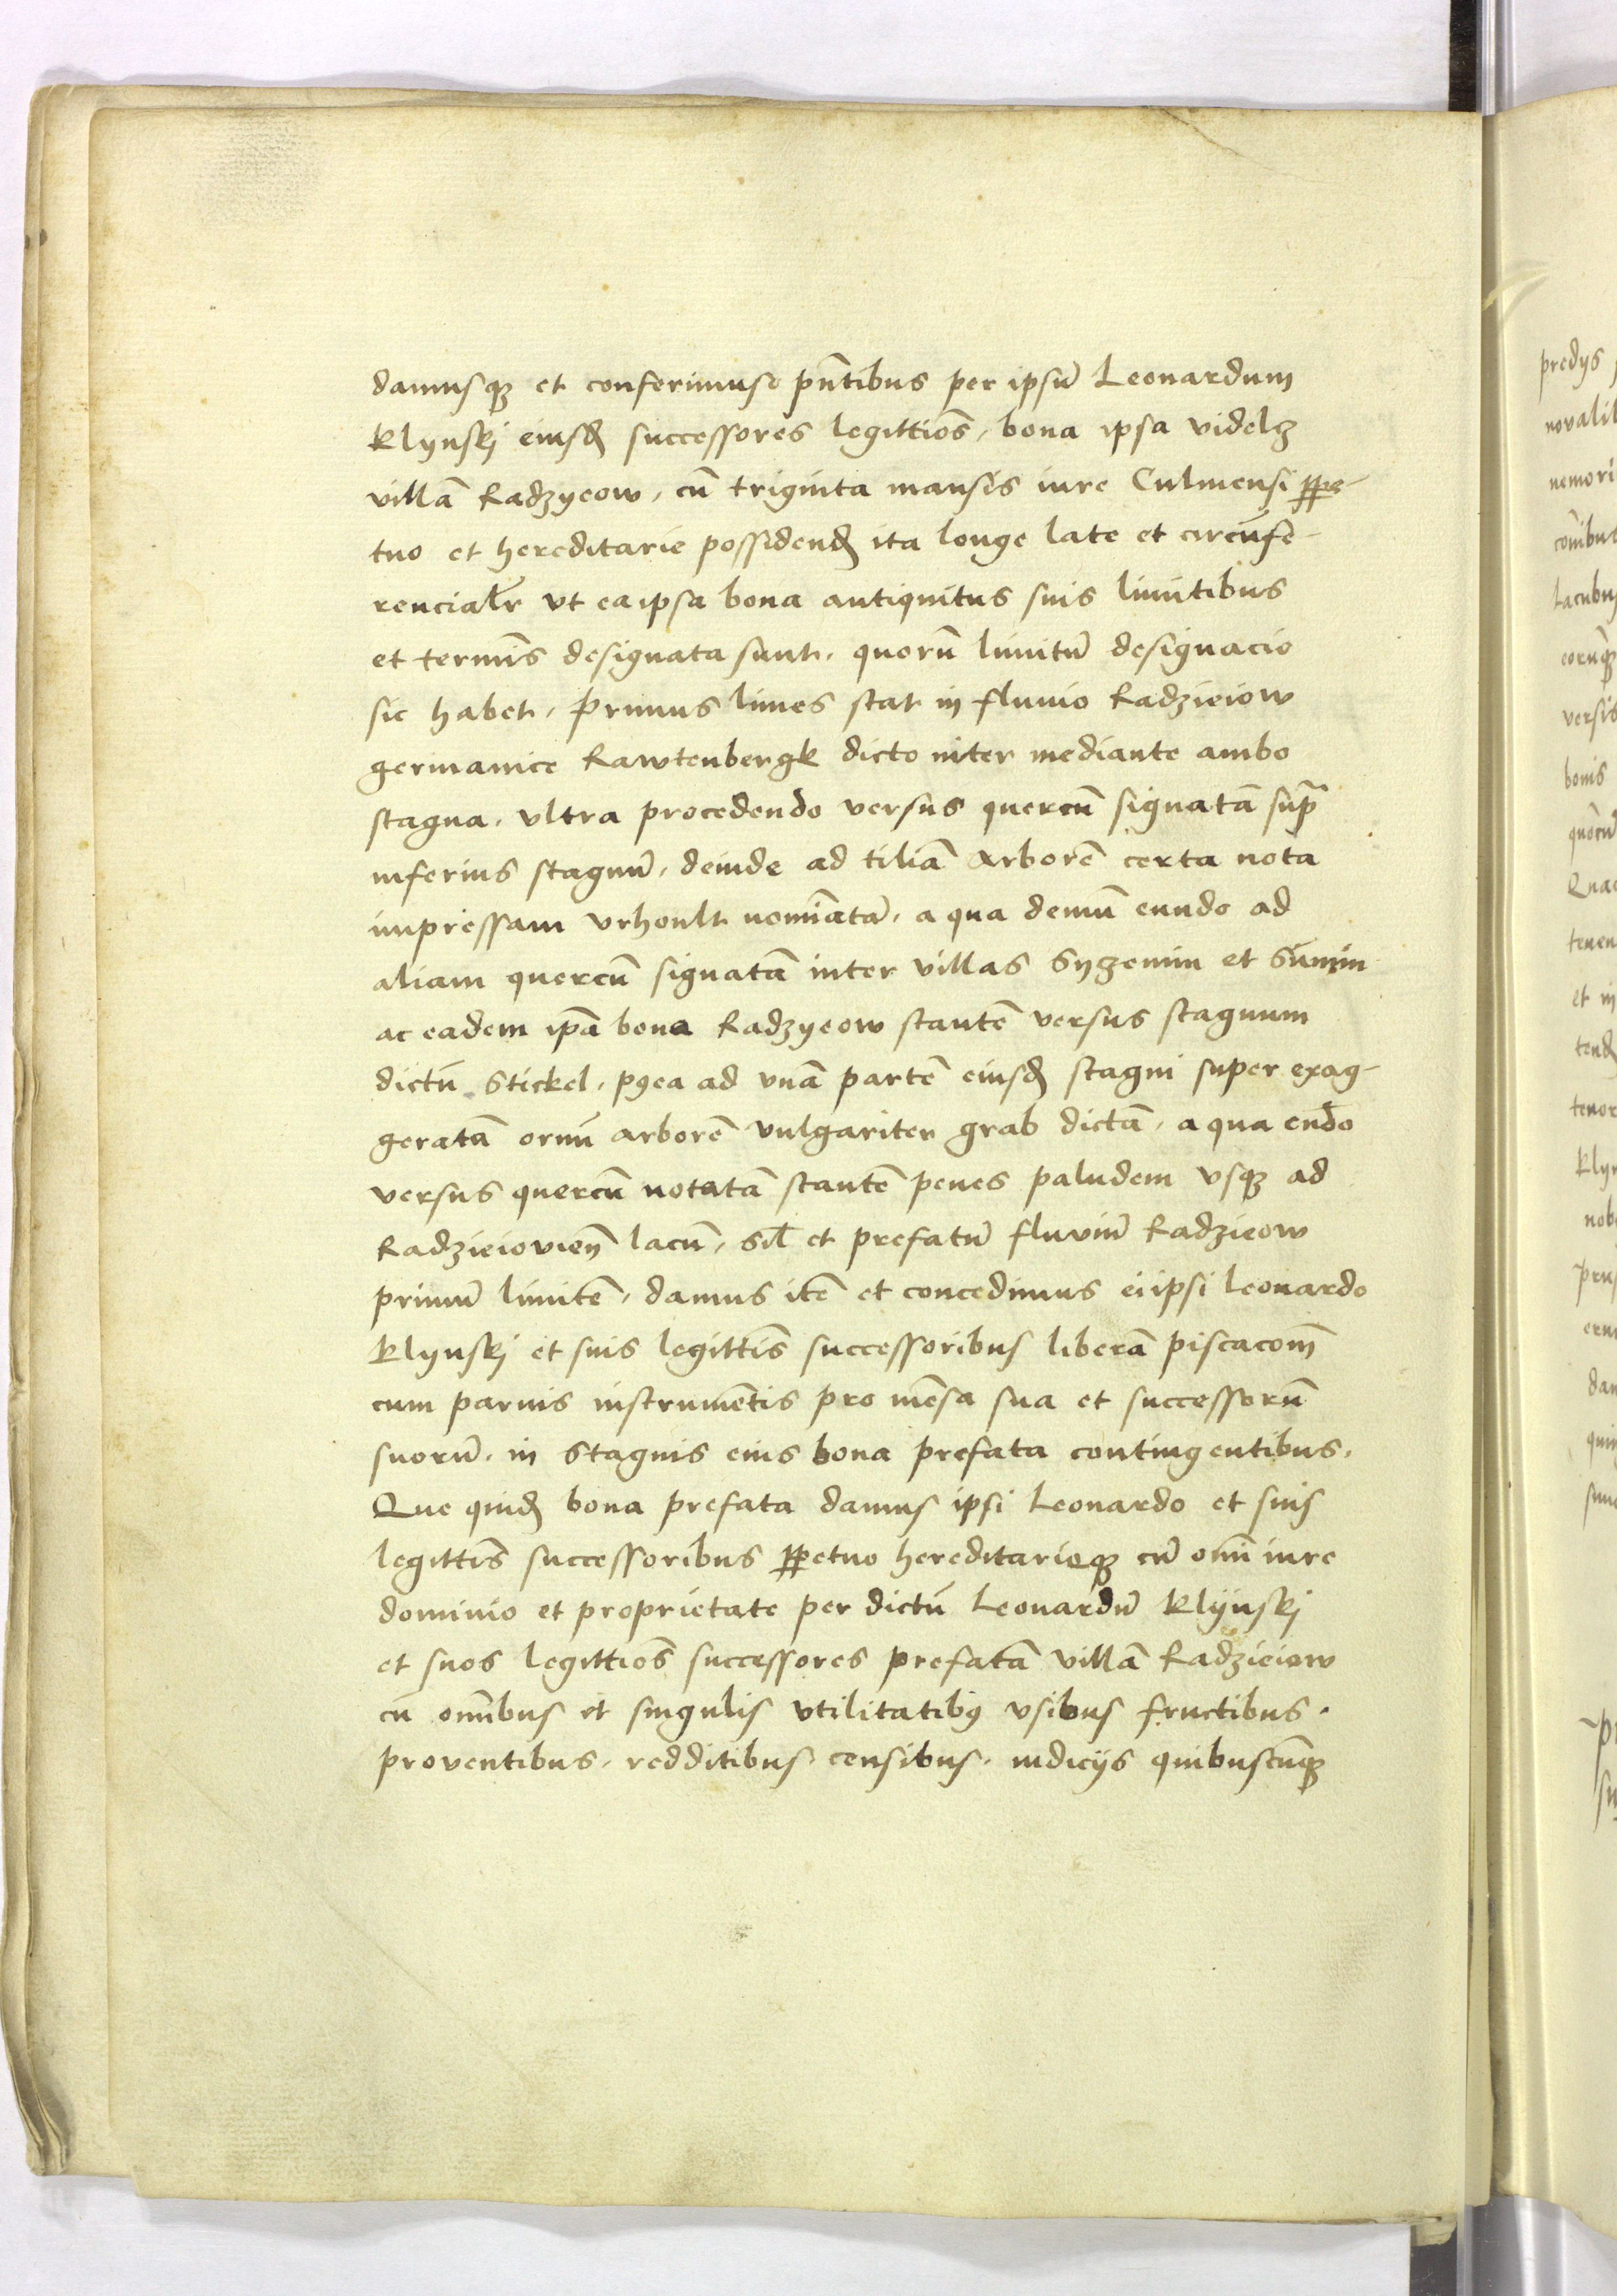 damusqȝ et conferimus pn̄tibus per ipsū Leonardum
Klynskj eiusđ successores legittiōs, bona ipsa videlȝ
villā Radzyeow, cū triginta mansis iure Culmensi ꝑpe-
tuo et hereditarie possidenđ ita longe late et circūfe-
rencialr̄ vt ea ipsa bona antiquitus suis limitibus
et termīs designata sunt. quorū limitū designacio
sic habet. primus limes stat in fluvio Radzieiow
germanice Rawtenbergk dicto inter mediante ambo
stagna. vltra procedendo versus quercū signatā supra
inferius stagnū, deinde ad tiliā Arborē certa nota
impressam vrhoult nomīatā, a qua demū eundo ad
aliam quercū signatā inter villas Syzemin et Sūmin
ac eadem ip̄a bona Radzyeow stantē versus stagnum
dictū Stickel, pꝯea ad vnā partē eiusđ stagni super exag-
geratā ornū arborē vulgariter grab dictā, a qua eūdo
versus quercū notatā stantē penes paludem vsqȝ ad
Radzieiovieñ lacū, sil̄ et prefatū fluviū Radzieow
primū limitē, damus itē et concedimus ei ipsi Leonardo
Klynskj et suis legittīs successoribus liberā piscacōm̄
cum parvis instrumētis pro mēsa sua et successorū
suorū. in Stagnis eius bona prefata contingentibus.
Que quiđ bona prefata damus ipsi Leonardo et suis
legittīs successoribus ꝑpetuo hereditarieqȝ cū om̄i iure
dominio et proprietate per dictū Leonardū Klynskj
et suos legittiōs successores prefatā villā Radzieiow
cū om̄ibus et singulis vtilitatibꝯ vsibus fructibus.
proventibus. redditibus censibus. iudicijs quibuscūqȝ